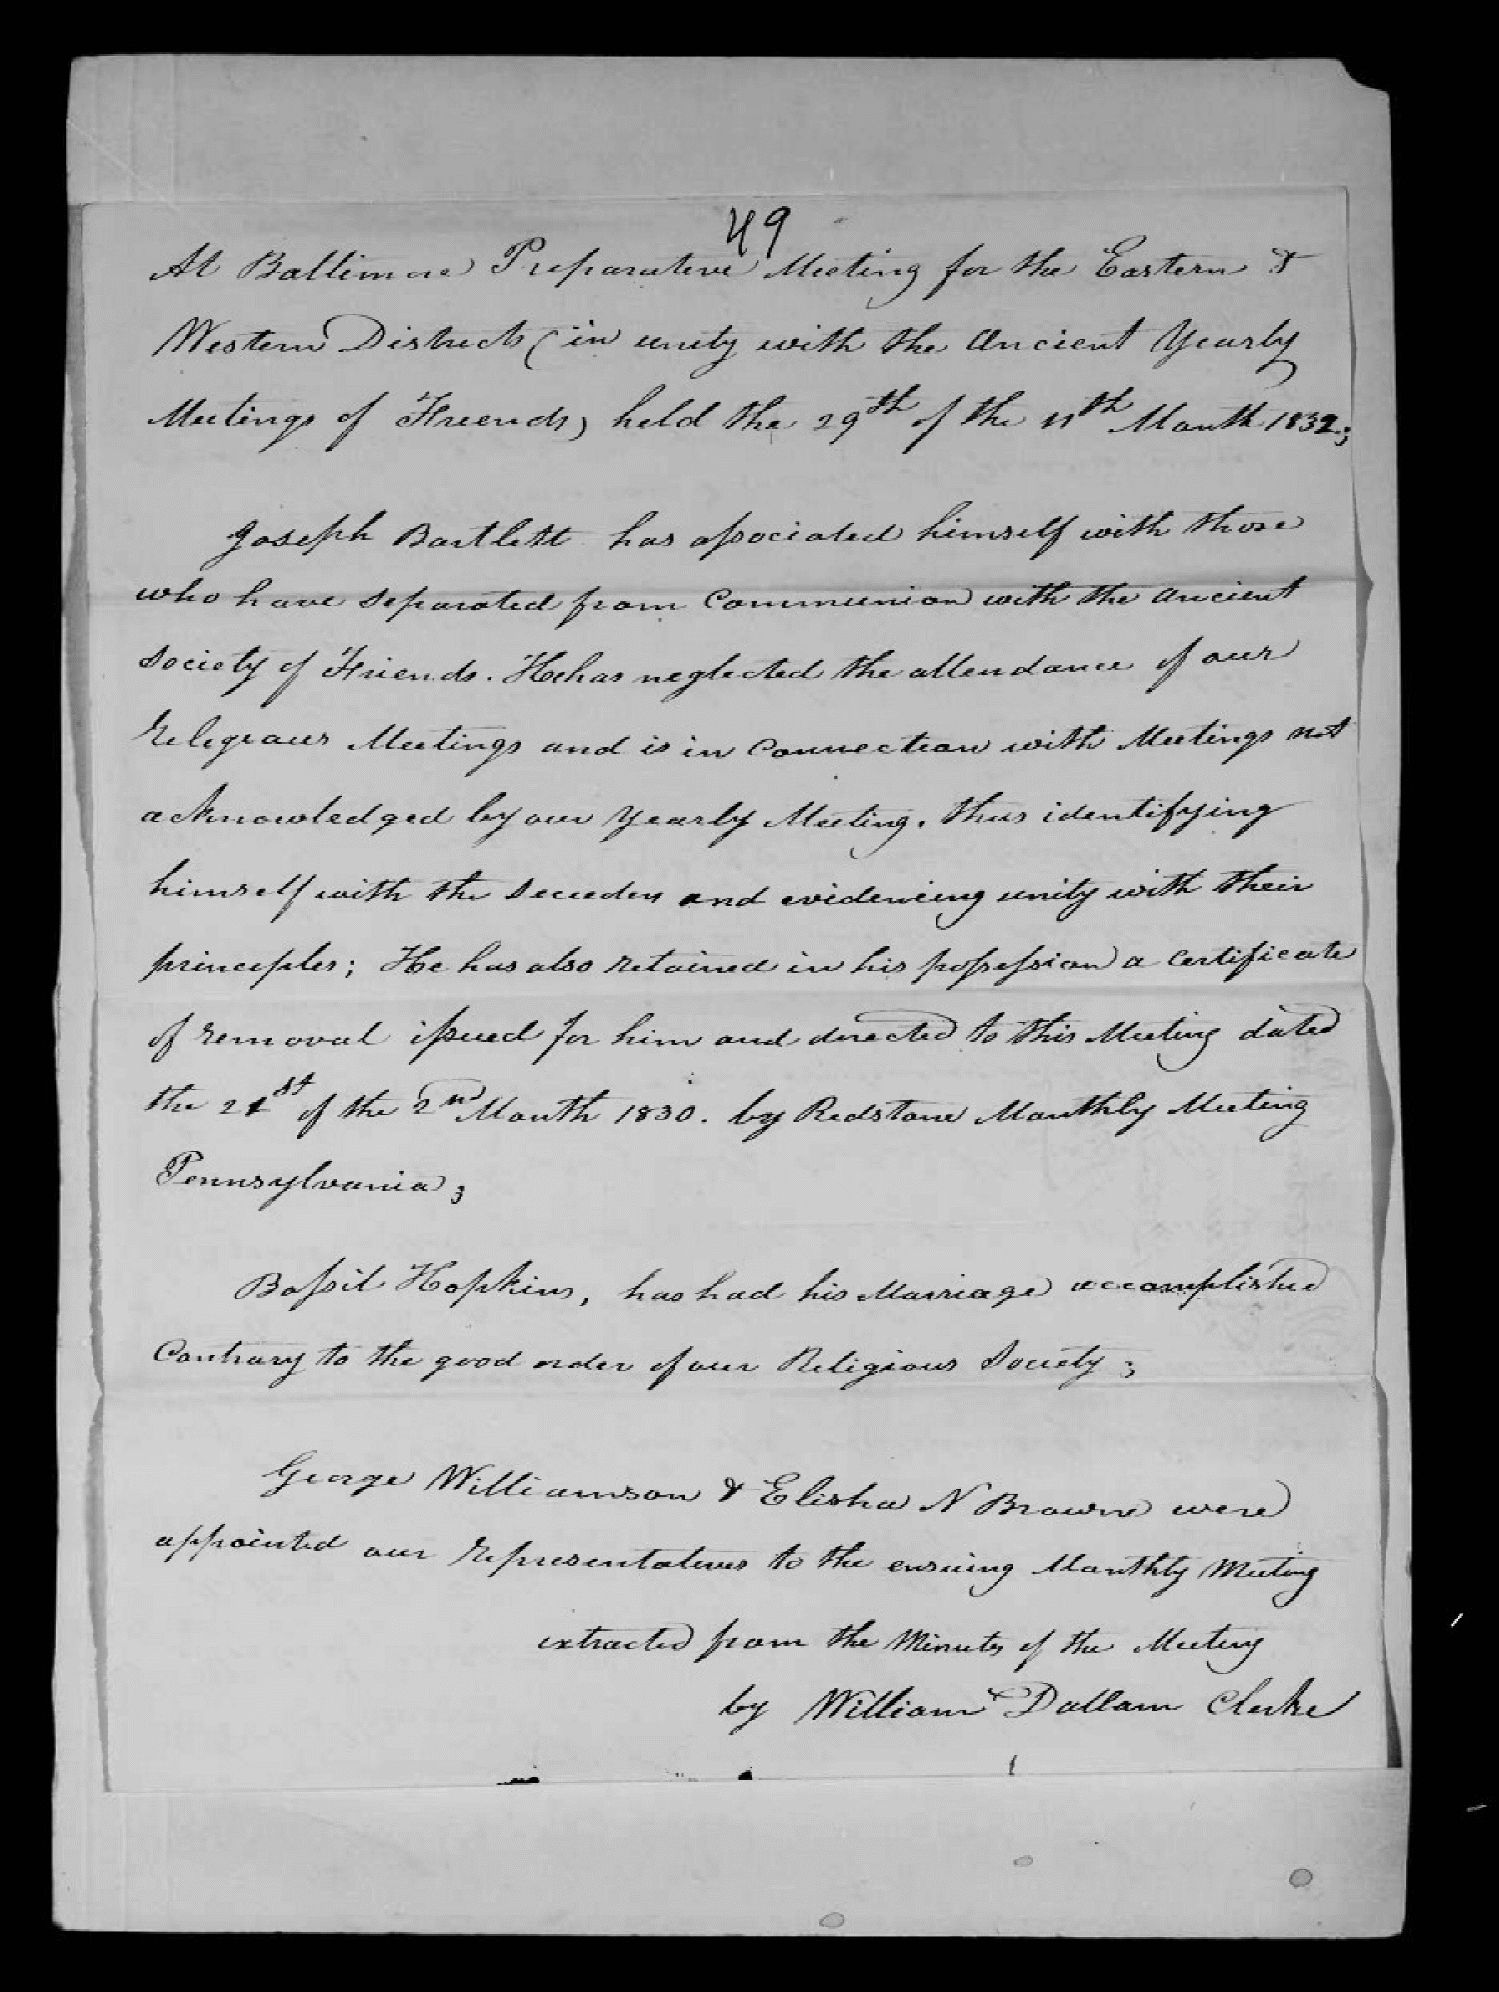 49
At Baltimore Preparative Meeting for the Eastern &
Western Districts (in unity with the Ancient Yearly
Meetings of Friends) held the 29th of the 11th Month 1832;
Joseph Bartlett has associated himself with those
who have separated from Communion with the ancient
Society of Friends. He has neglected the attendance of our
religious Meetings and is in Connection with Meetings not
acknowledged by our Yearly Meeting. thus identifying
himself with the Seceeders and evidencing unity with their
principles; He has also retained in his possession a Certificate
of removal issued for him and directed to this Meeting dated
the 21st of the 2nd Month 1830. by Redstone Monthly Meeting
Pennsylvania;
Bassil Hopkins, has had his Marriage accomplished
Contrary to the good order of our Religious Society;
George Williamson & Elisha N Brown were
appointed our representatives to the ensuing Monthly Meeting
extracted from the Minutes of the Meeting
by William Dallam Clerke